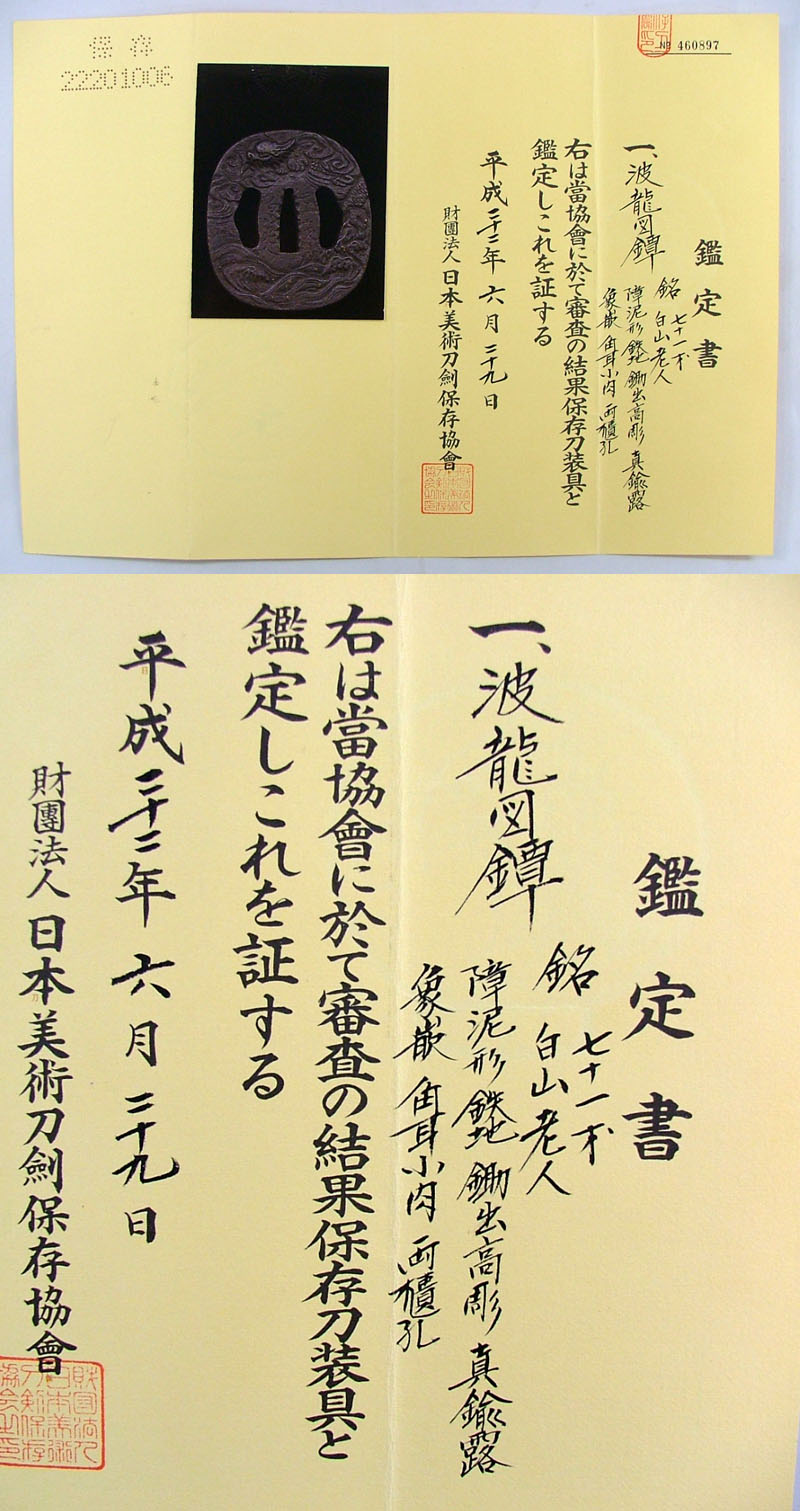 保存
22201006
No 460897
鑑定書
一、波龍図鐔
銘 七十一才
白山老人
障泥形 鉄地 鋤出高彫 真鍮露
象嵌 角耳小肉 両櫃孔
右は當協會に於て審査の結果保存刀装具と
鑑定しこれを証する
平成二十二年六月二十九日
財團法人日本美術刀劍保存協會
鑑定書
一、波龍図鐔
銘 七十一才
白山老人
障泥形 鉄地 鋤出高彫 真鍮露
象嵌 角耳小肉 両櫃孔
右は當協會に於て審査の結果保存刀装具と
鑑定しこれを証する
平成二十二年六月二十九日
財團法人日本美術刀劍保存協會